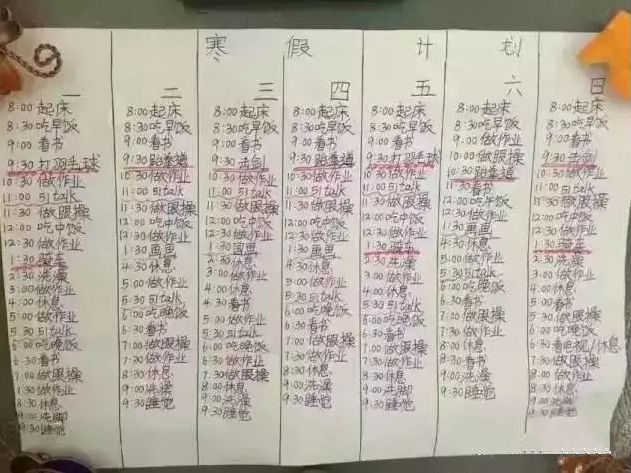 寒假计划
一
8:00起床
8:30吃早饭
9:00看书
9:30打羽毛球
10:30做作业
11:00 51talk
11:30做眼操
12:00吃中饭
12:30做作业
1:30骑车
2:30洗澡
3:00做作业
4:00休息
5:00做作业
5:30 51talk
6:00吃晚饭
6:30看书
7:00做眼操
7:30做作业
8:30休息
9:00洗脚
9:30睡觉
二
8:00起床
8:30吃早饭
9:00看书
9:30跆拳道
10:30做作业
11:00 51talk
11:30做眼操
12:00吃中饭
12:30做作业
1:30画画
4:30休息
5:00做作业
5:30 51talk
6:00吃晚饭
6:30看书
7:00做眼操
7:30做作业
8:30休息
9:00洗澡
9:30睡觉
三
8:00起床
8:30吃早饭
9:00看书
9:30击剑
10:30做作业
11:00 51talk
11:30做眼操
12:00吃中饭
12:30做作业
1:30画画
2:30休息
3:00做作业
4:00休息
4:30看书
5:00做作业
5:30 51talk
6:00吃晚饭
6:30看书
7:00做作业
7:30做眼操
8:00休息
9:00洗澡
9:30睡觉
四
8:00起床
8:30吃早饭
9:00看书
9:30跆拳道
10:30做作业
11:00 51talk
11:30做眼操
12:00吃中饭
12:30做作业
1:30画画
4:30休息
5:00做作业
5:30 51talk
6:00吃晚饭
6:30看书
7:00做眼操
7:30做作业
8:30休息
9:00洗澡
9:30睡觉
五
8:00起床
8:30吃早饭
9:00看书
9:30打羽毛球
10:30做作业
11:00 51talk
11:30做眼操
12:00吃中饭
12:30做作业
1:30骑车
2:30洗澡
3:00做作业
4:00休息
5:00做作业
5:30 51talk
6:00吃晚饭
6:30看书
7:00做眼操
7:30做作业
8:30休息
9:00洗澡
9:30睡觉
六
8:00起床
8:30吃早饭
9:00看书
9:30做作业
10:00做眼操
10:30跆拳道
11:30看书
12:00吃午饭
12:30做作业
1:30画画
4:30休息
5:00做作业
6:00吃晚饭
7:00做作业
7:30做眼操
8:00休息
8:30看书
9:00洗澡
9:30睡觉
日
8:00起床
8:30吃早饭
9:00看书
9:30击剑
10:30做作业
11:00 51talk
11:30做眼操
12:00吃中饭
12:30做作业
1:30骑车
2:30洗澡
3:00做作业
4:00休息
5:00看书
5:30做眼操
6:00吃晚饭
6:30看电视/休息
7:30做眼操
8:00做作业
8:30休息
9:00洗澡
9:30睡觉